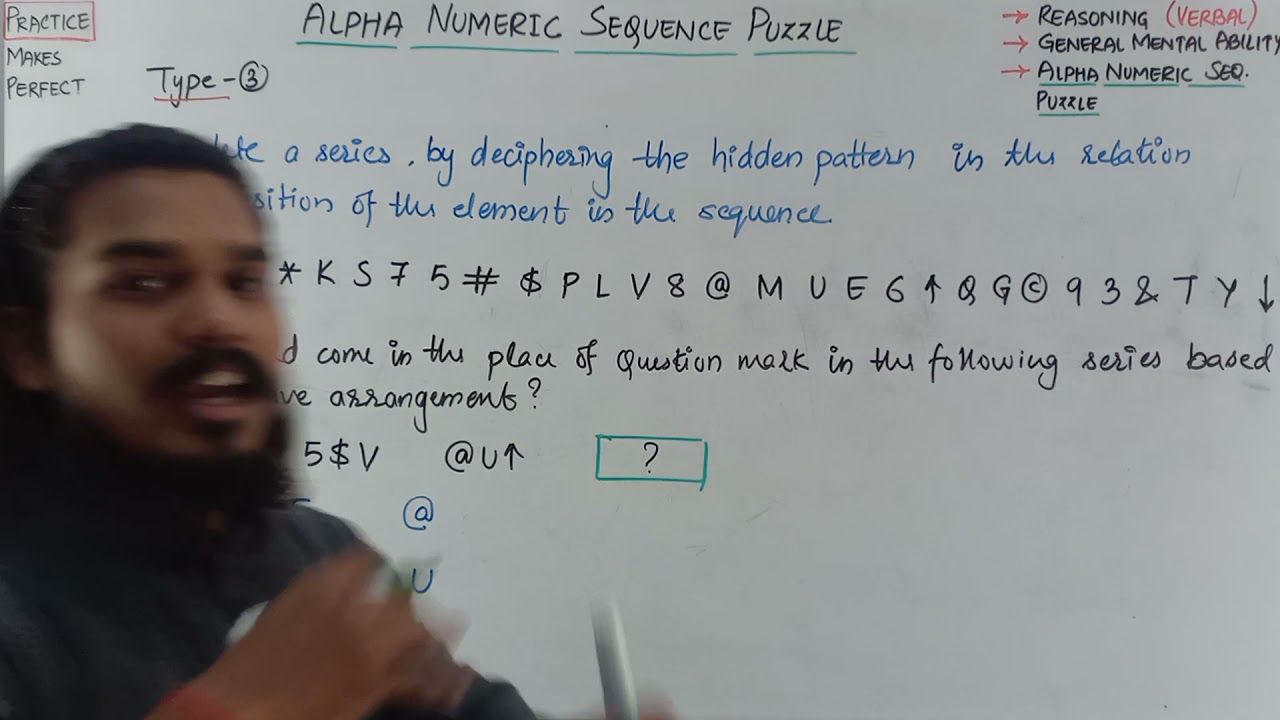 PRACTICE
MAKES
PERFECT
ALPHA NUMERIC SEQUENCE PUZZLE
→ REASONING (VERBAL)
→ GENERAL MENTAL ABILITY
→ ALPHA NUMERIC SEQ.
PUZZLE
Type-③
a series, by deciphering the hidden pattern in the relation
of the element in the sequence
* K S 7 5 # $ P L V 8 @ M U E 6 ↑ Q G © 9 3 & T Y ↓
come in the place of Question mark in the following series based
arrangement?
5$V @U↑ ?
@
U